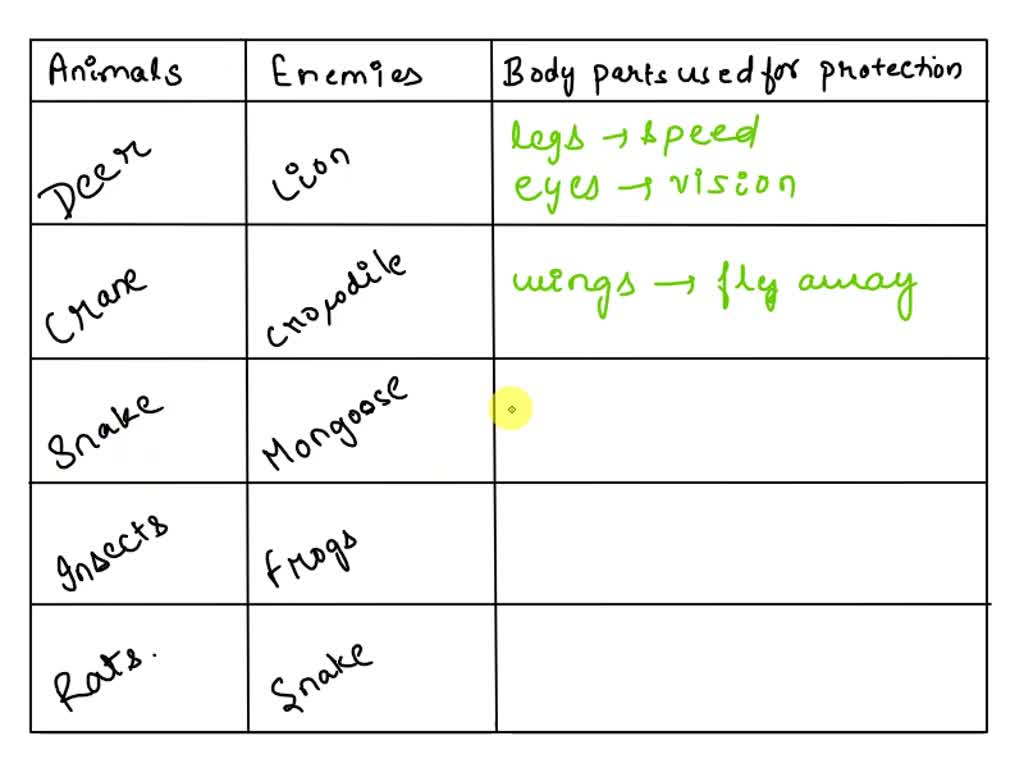 Animals Enemies Body parts used for protection
Deer Lion legs → speed
eyes → vision
Crane Crocodile wings → fly away
Snake Mongoose
Insects Frogs
Rats. Snake